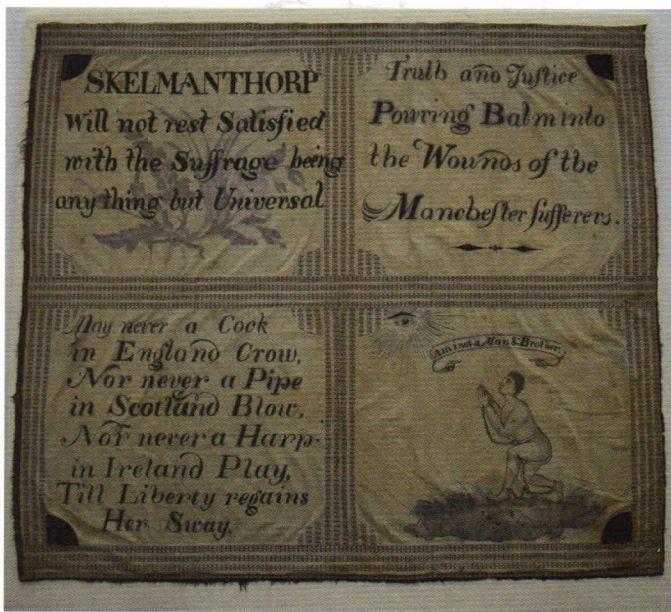 SKELMANTHORP
Will not rest Satisfied
with the Suffrage being
any thing but Universal
Truth and Juſtice
Pouring Balm into
the Wounds of the
Mancheſter ſufferers.
May never a Cock
in England Crow,
Nor never a Pipe
in Scotland Blow,
Nor never a Harp
in Ireland Play,
Till Liberty regains
Her Sway.
Am I not a Man & Brother